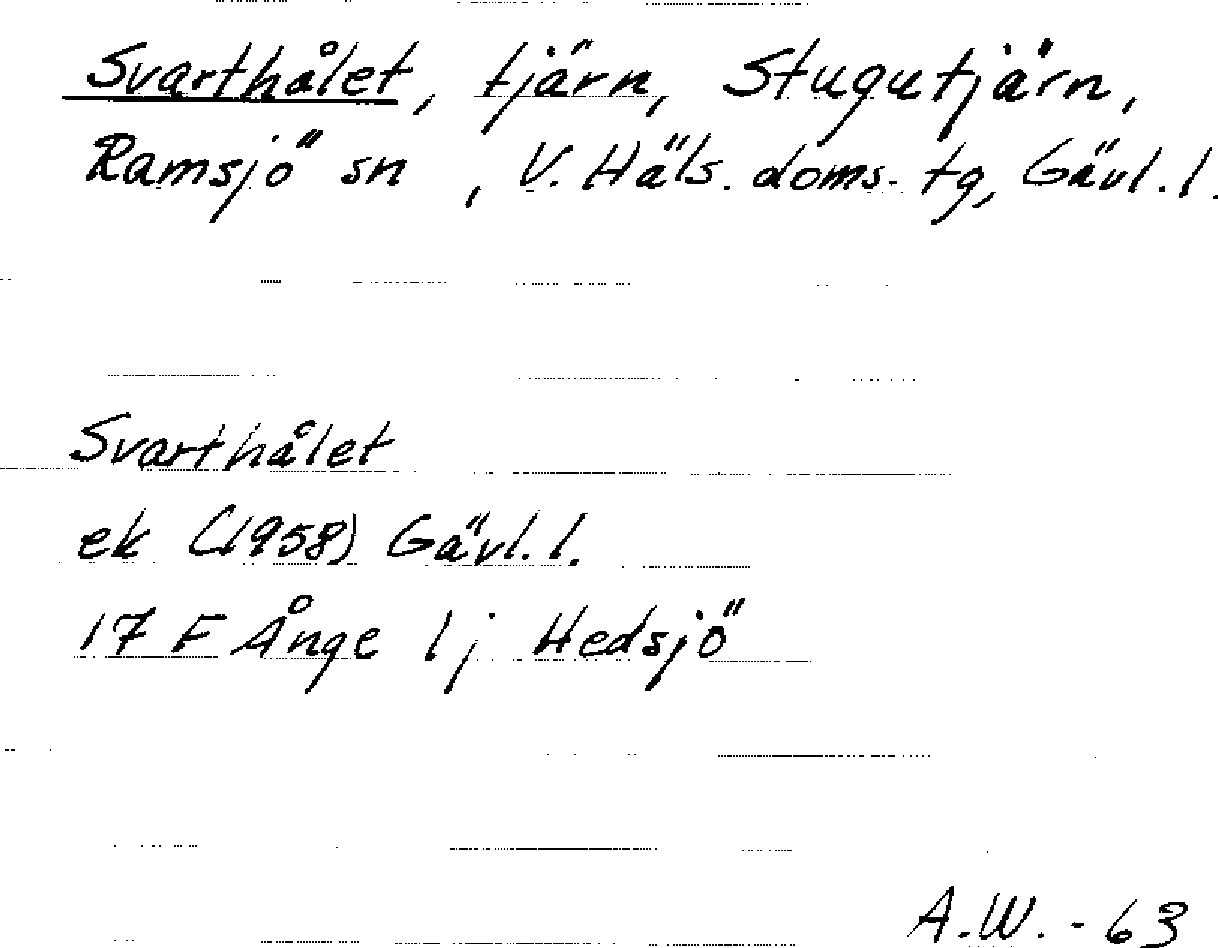 Svarthålet, tjärn, Stugutjärn,
Ramsjö sn , V. Häls. doms. tg, Gävl. l.
Svarthålet
ek (1958) Gävl. l.
17 F Ånge 1j Hedsjö
A.W. - 63